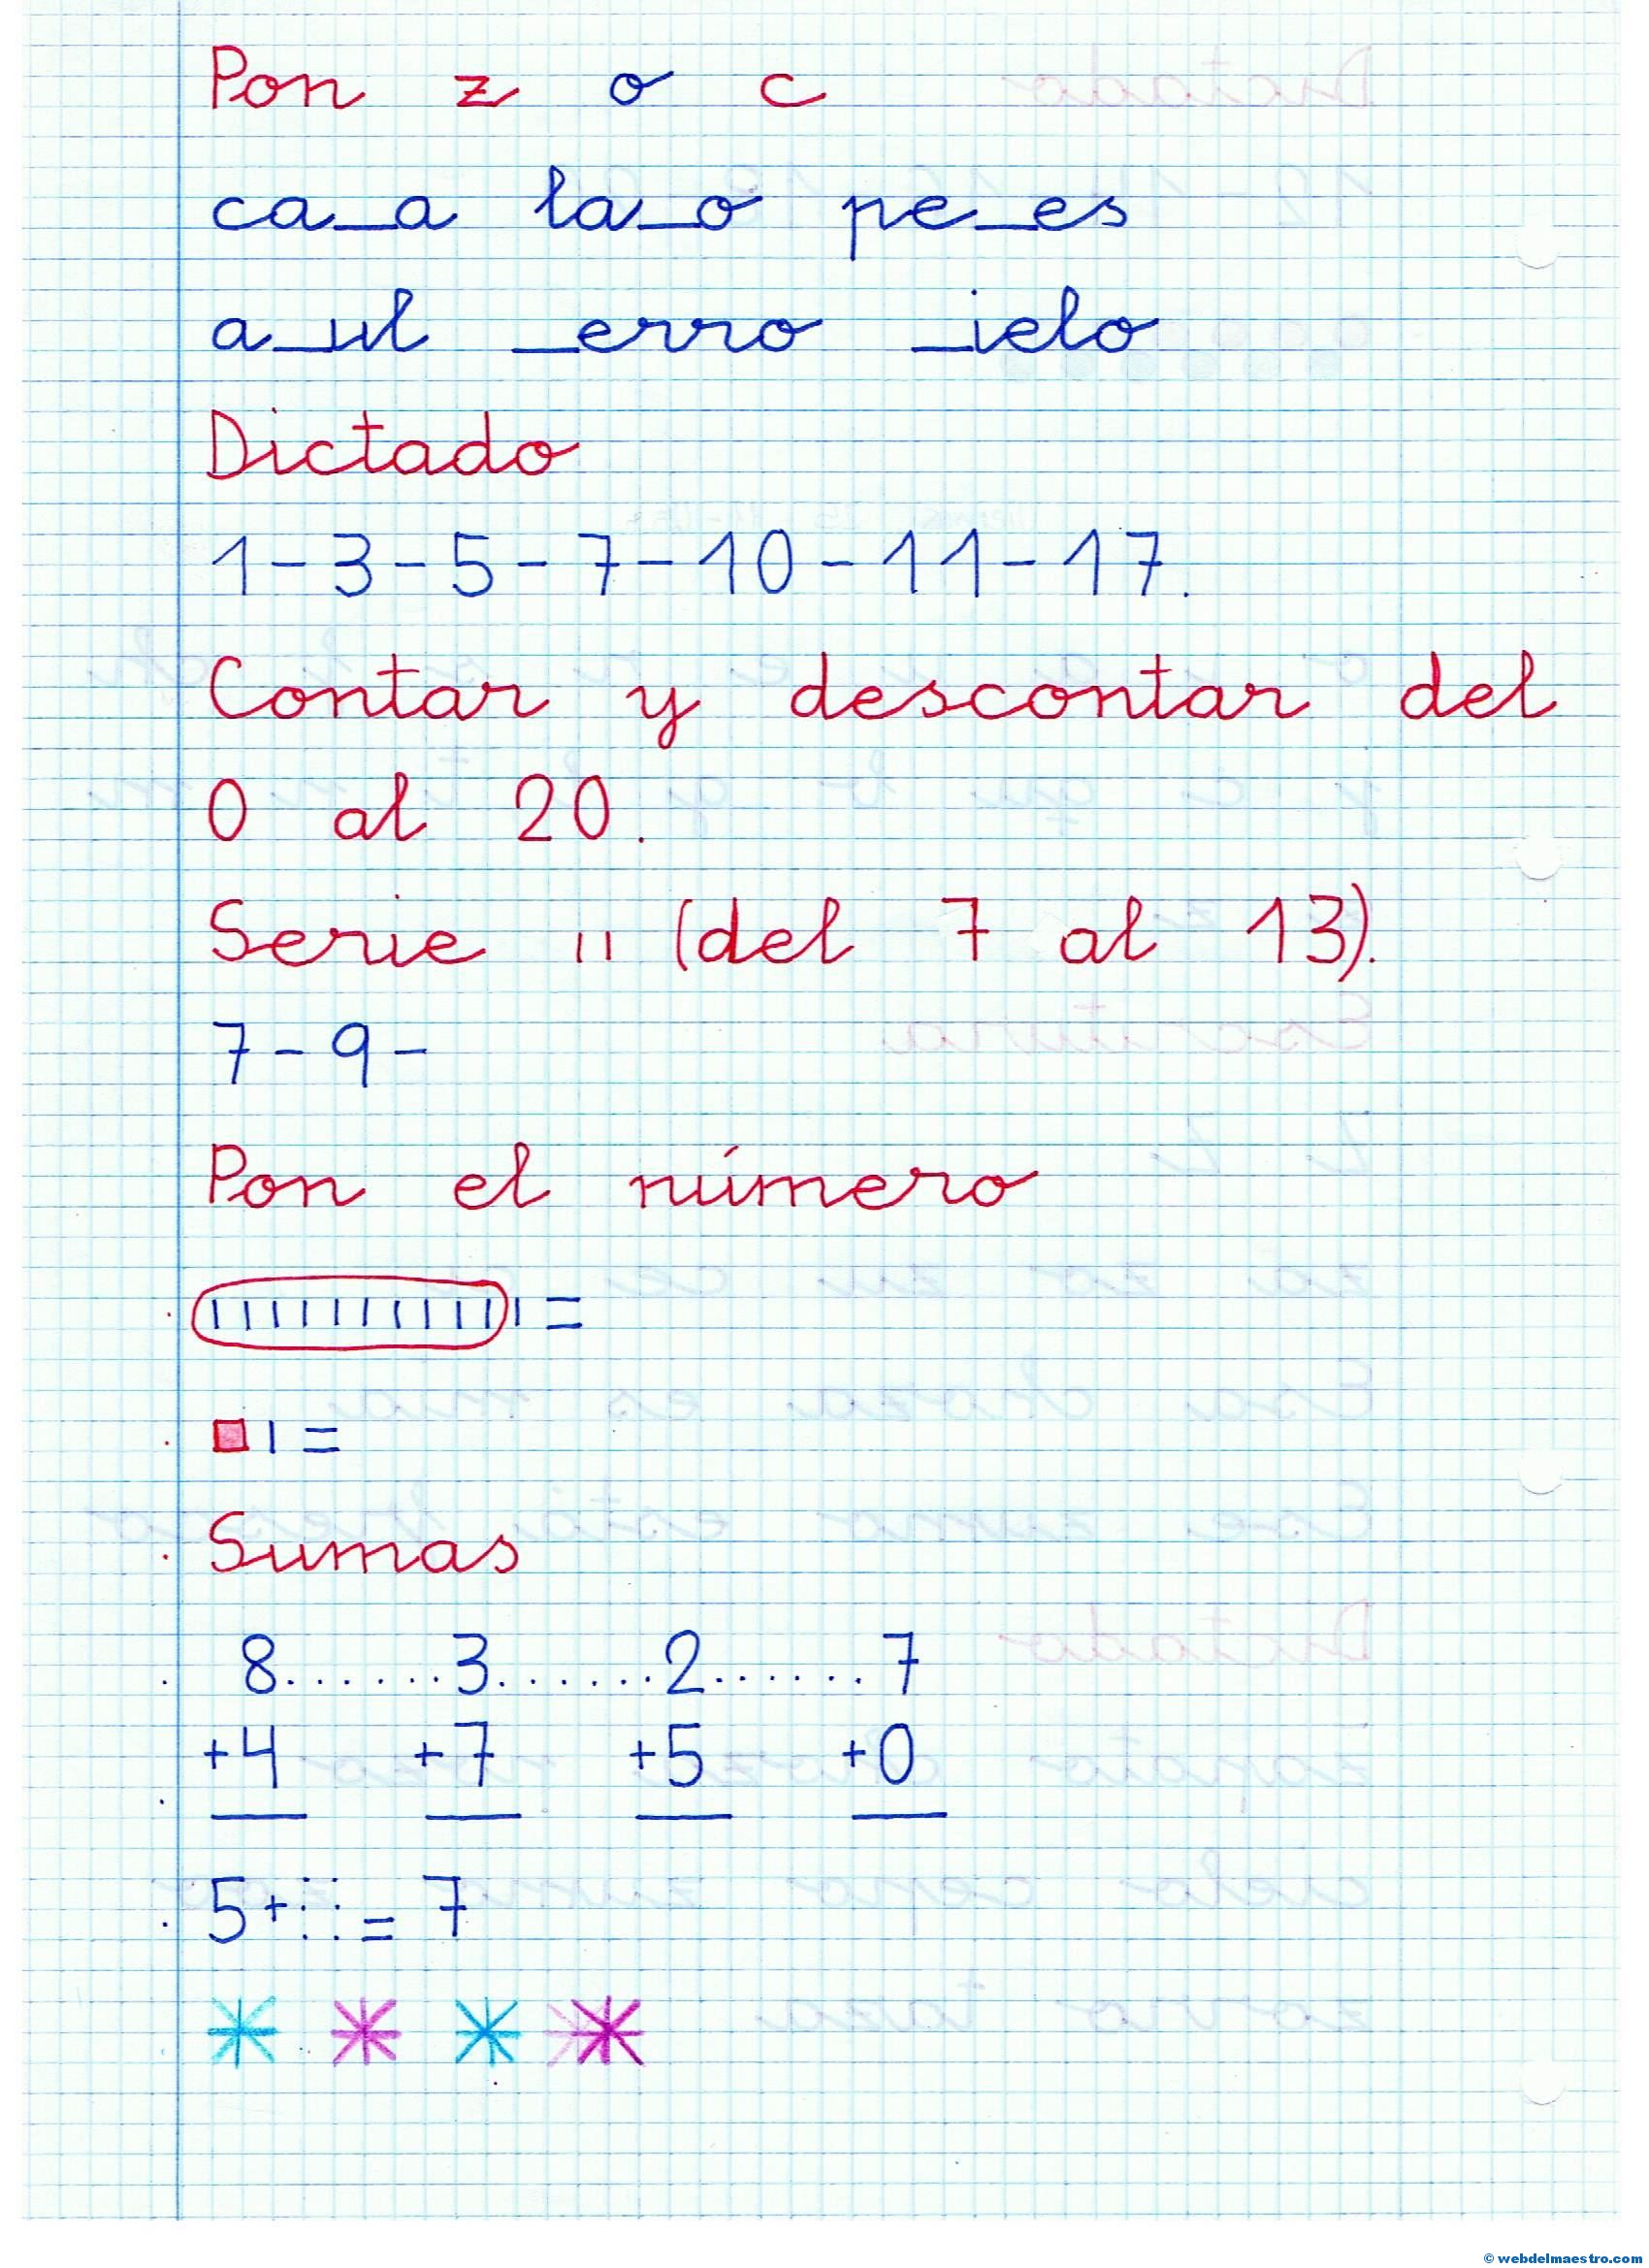 Pon z o c
ca_a la_o pe_es
a_ul _erro _ielo
Dictado
1-3-5-7-10-11-17.
Contar y descontar del
0 al 20.
Serie 11 (del 7 al 13).
7-9-
Pon el número
=
=
Sumas
8.......3.......2.......7
+4 +7 +5 +0
5+ = 7
© webdelmaestro.com